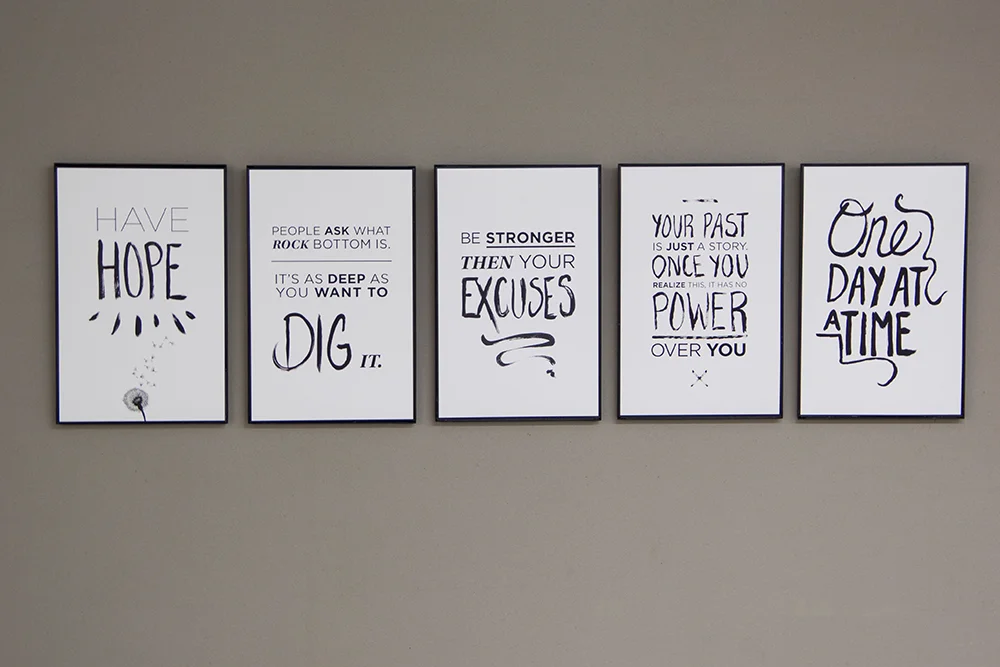 HAVE
HOPE
PEOPLE ASK WHAT
ROCK BOTTOM IS.
IT'S AS DEEP AS
YOU WANT TO
DIG IT.
BE STRONGER
THEN YOUR
EXCUSES
YOUR PAST
IS JUST A STORY.
ONCE YOU
REALIZE THIS, IT HAS NO
POWER
OVER YOU
One
DAY AT
A TIME